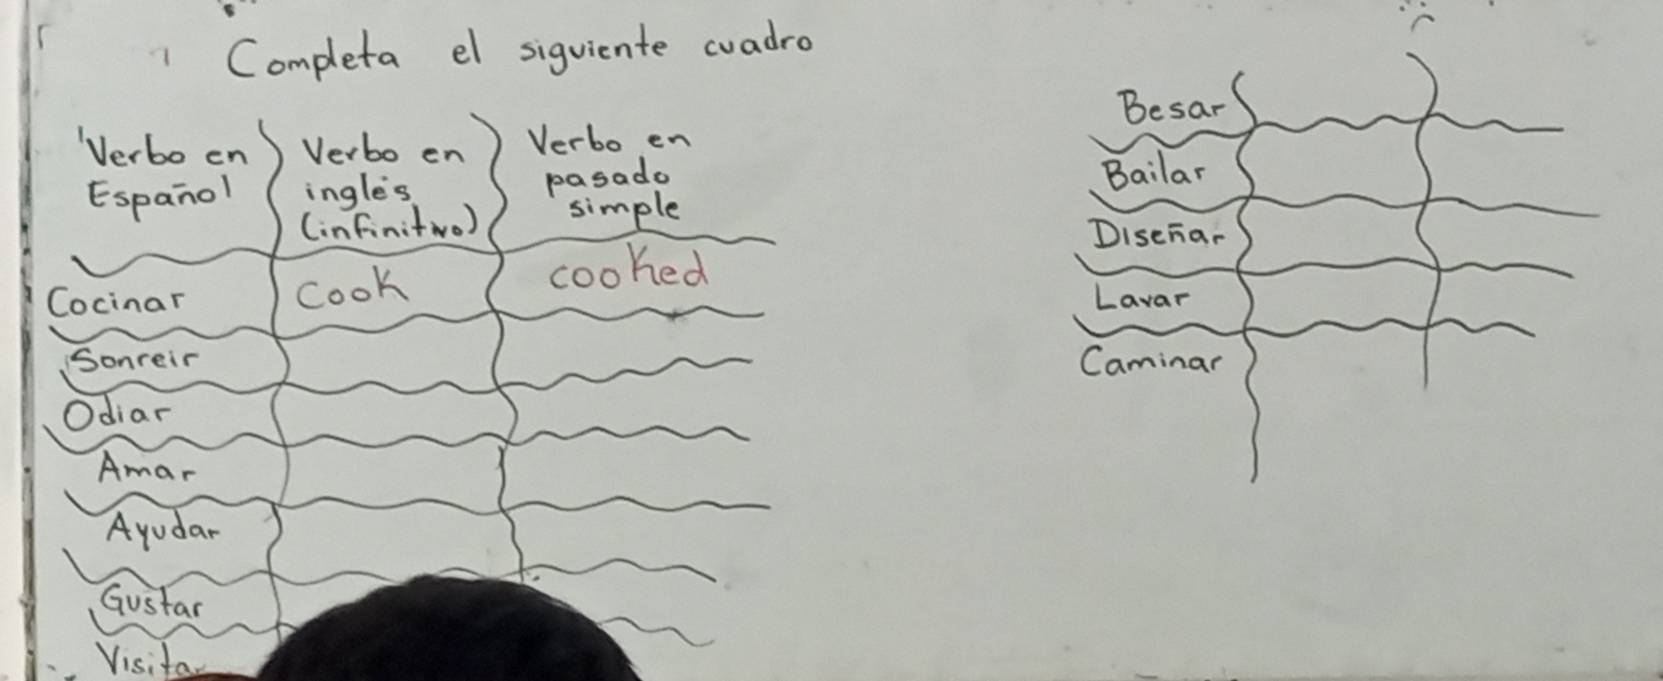 Completa el siguiente cuadro
Verbo en Español
Verbo en inglés (infinitivo)
Verbo en pasado simple
Cocinar cook cooked
Sonreir
Odiar
Amar
Ayudar
Gustar
Visitar
Besar
Bailar
Diseñar
Lavar
Caminar